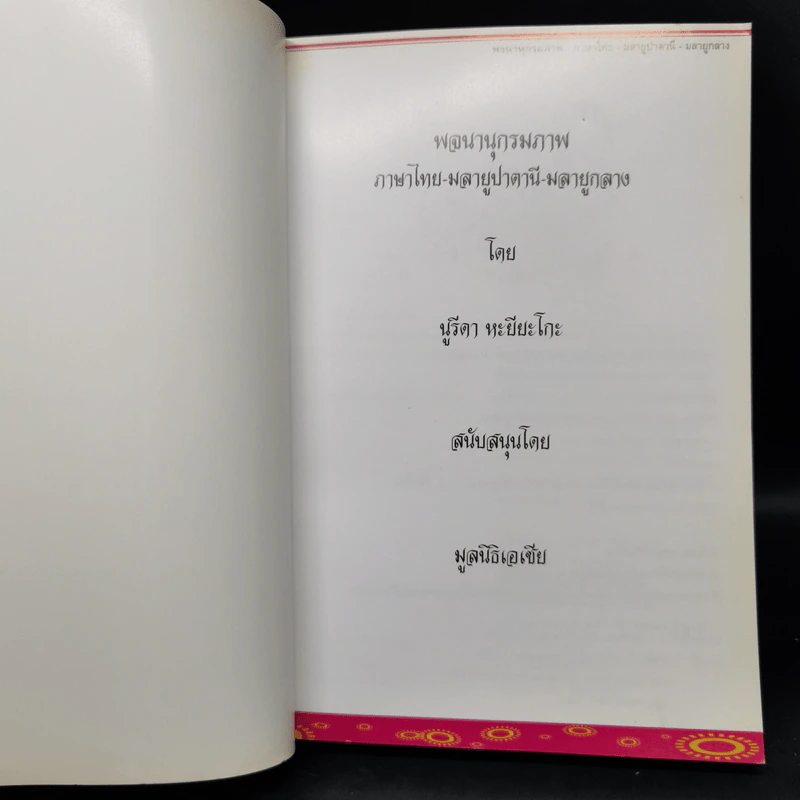 พจนานุกรมภาพ ภาษาไทย - มลายูปาตานี - มลายูกลาง
พจนานุกรมภาพ
ภาษาไทย-มลายูปาตานี-มลายูกลาง
โดย
นูรีดา หะยียะโกะ
สนับสนุนโดย
มูลนิธิเอเชีย